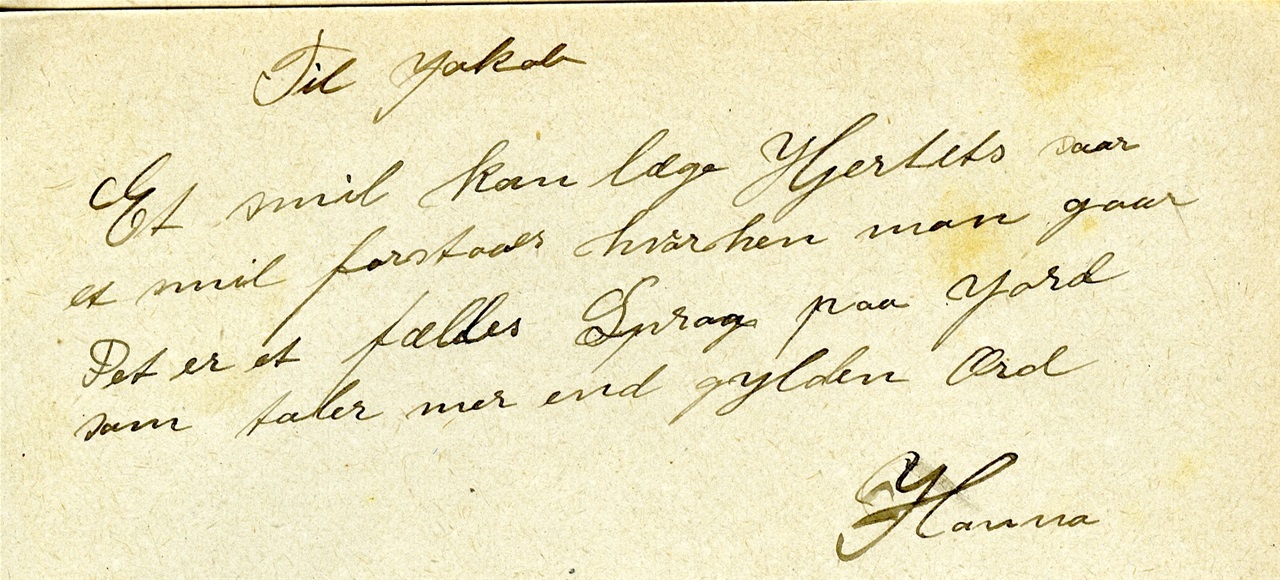 Til Jakob
Et smil kan læge Hjertets saar
et smil forstaaes hvorhen man gaar
Det er et fælles Sprog paa Jord
som taler mer end gylden Ord
Hanna